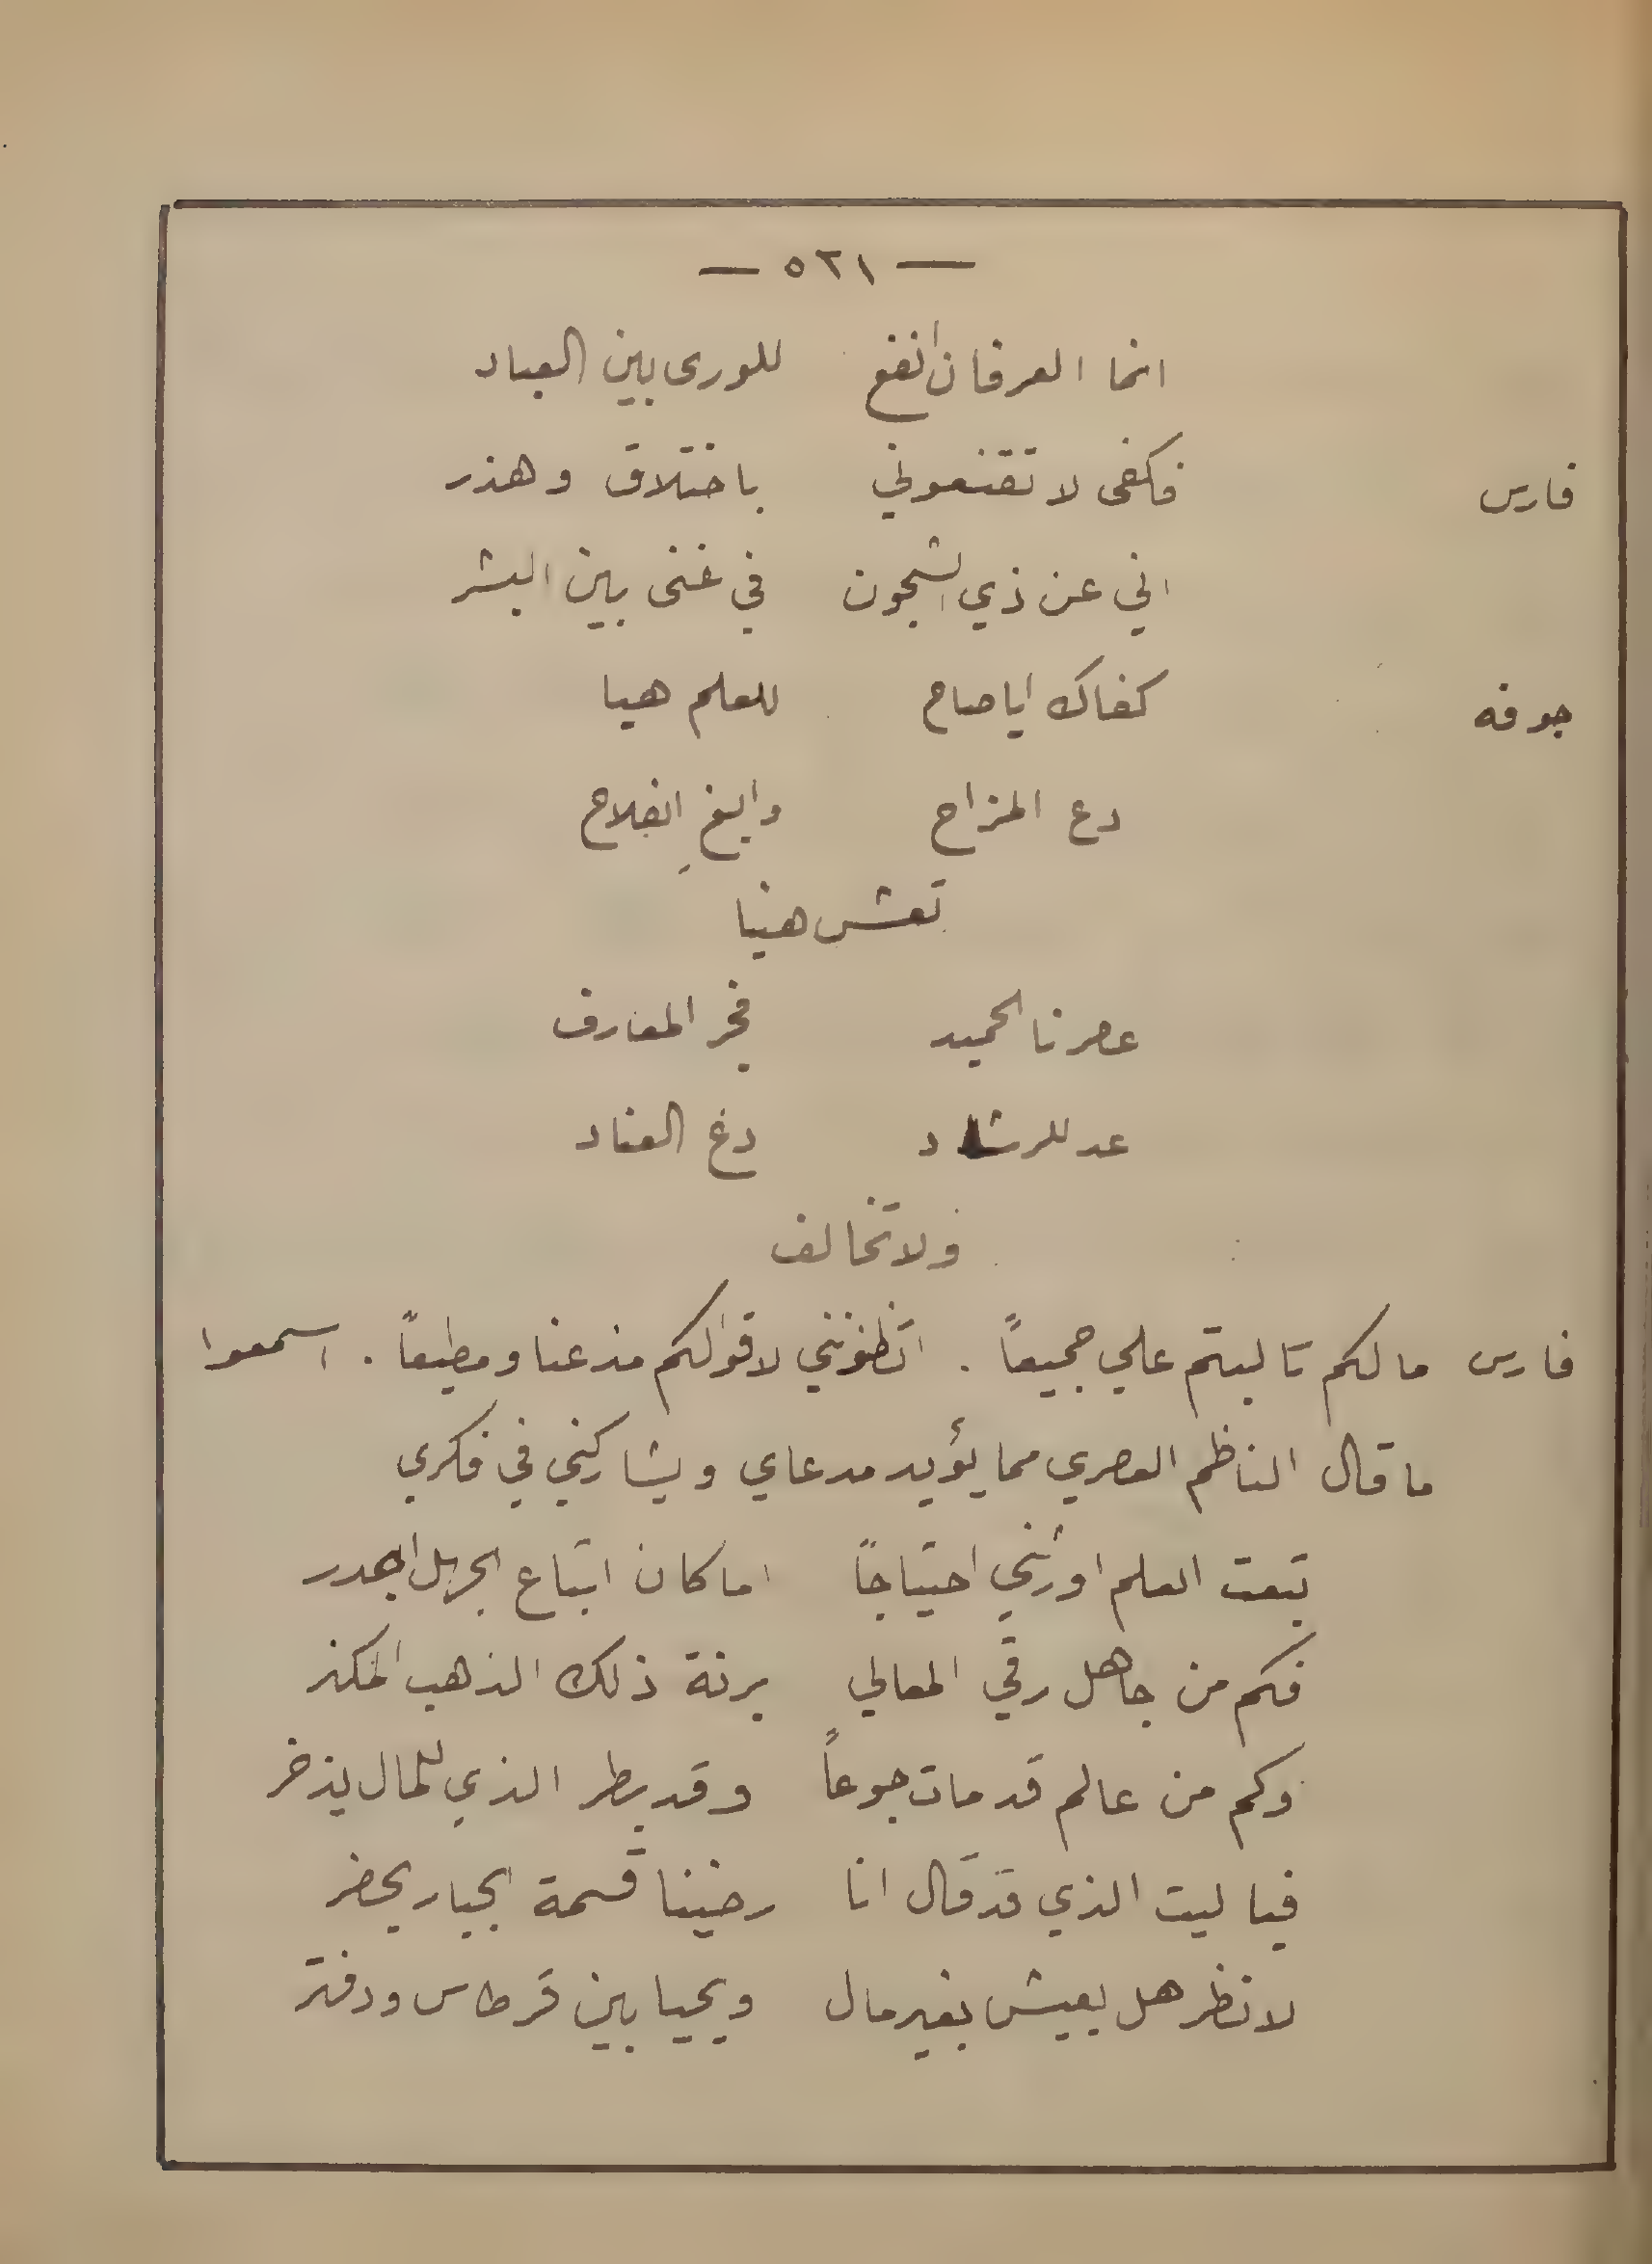 — ٥٢١ —
انما العرفان انفع للورى بين العباد
فارس فكفى لا تقنعوني باختلاق وهذر
اني عن ذي الشجون في غنى بين البشر
جوقه كفاك ايا صاح للعلم هيا
دع المزاح وابغِ الفلاح
تعش هنيا
عصرنا الحميد فجر المعارف
عد للرشاد دع العناد
ولا تخالف
فارس ما لكم تالبتم علي جميعاً . اتظنونني لاقوالكم مذعنا ومطيعاً . اسمعوا
ما قال الناظم العصري مما يؤيد مدعاي ويشاركني في فكري
تبعت العلم اورثني احتياجاً اما كان اتباع الجهل اجدر
فكم من جاهل رقي المعالي برنة ذلك الذهب المكنز
وكم من عالم قد مات جوعاً وقد بطر الذي للمال يذخر
فيا ليت الذي قد قال انا رضينا قسمة الجبار يحضر
لانظر هل يعيش بغير مال ويحيا بين قرطاس ودفتر